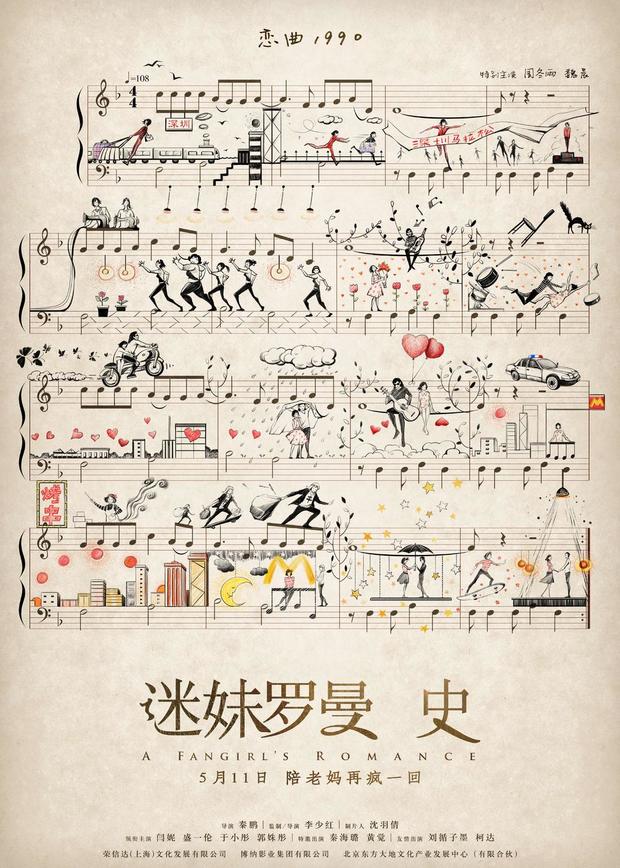 恋曲1990
特别主演 周冬雨 魏晨
=108
4
4
深圳
深圳马拉松
烤串
迷妹罗曼 史
A FANGIRL'S ROMANCE
5月11日 陪老妈再疯一回
导演 秦鹏 | 监制/导演 李少红 | 制片人 沈羽倩
领衔主演 闫妮 盛一伦 于小彤 郭姝彤 | 特邀出演 秦海璐 黄觉 | 友情出演 刘循子墨 柯达
荣信达(上海)文化发展有限公司 博纳影业集团有限公司 北京东方大地文化产业发展中心(有限合伙)